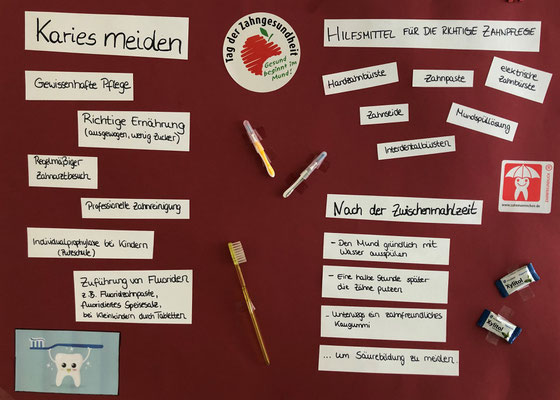 Karies meiden
Gewissenhafte Pflege
Richtige Ernährung
(ausgewogen, wenig Zucker)
Regelmäßiger
Zahnarztbesuch
Professionelle Zahnreinigung
Individualprophylaxe bei Kindern
Zuführung von Fluoriden
z.B. Fluoridzahnpasta,
fluoridiertes Speisesalz,
bei Kleinkindern durch Tabletten
Tag der Zahngesundheit
Gesund
beginnt im
Mund!
HILFSMITTEL FÜR DIE RICHTIGE ZAHNPFLEGE
Handzahnbürste
Zahnpaste
elektrische
Zahnbürste
Zahnseide
Mundspüllösung
Interdentalbürsten
Nach der Zwischenmahlzeit
- Den Mund gründlich mit
Wasser ausspülen
- Eine halbe Stunde später
die Zähne putzen
- Unterwegs ein zahnfreundliches
Kaugummi
... um Säurebildung zu meiden.
Xylitol
Xylitol